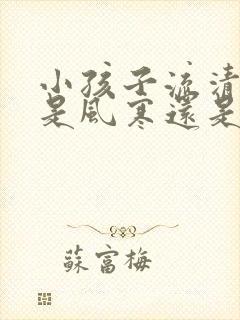 小孩子流清
是風寒還是
蘇富梅